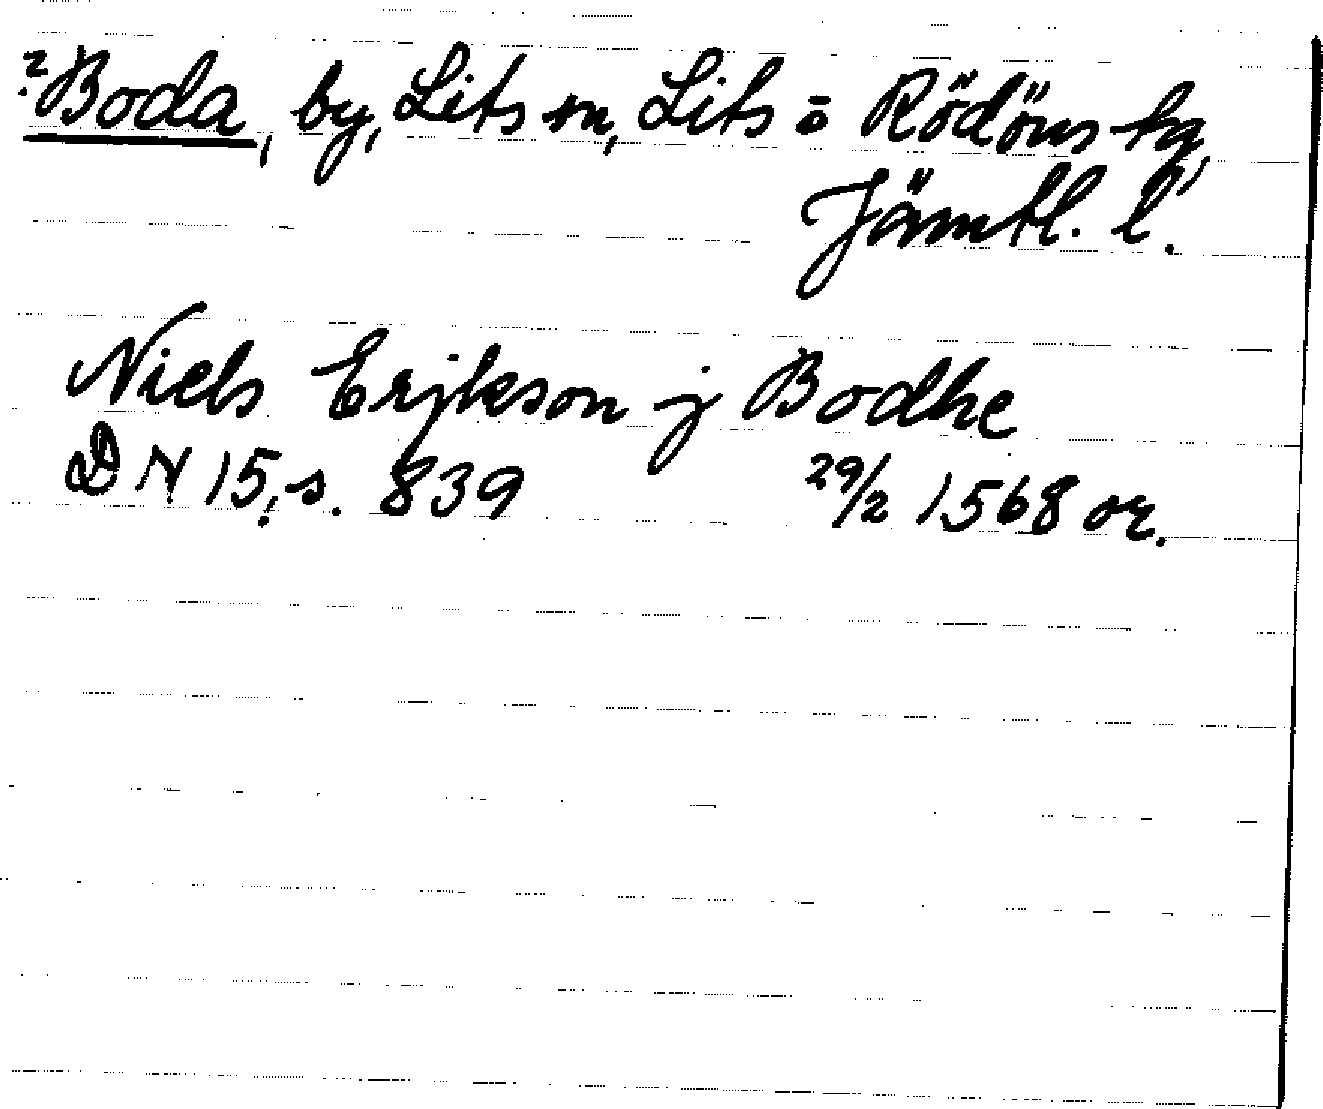 ?Boda, by, Lits sn, Lits o Rödöns tg,
Jämtl. l.
Niels Erjkson j Bodhe
DN 15, s. 839 29/2 1568 or.